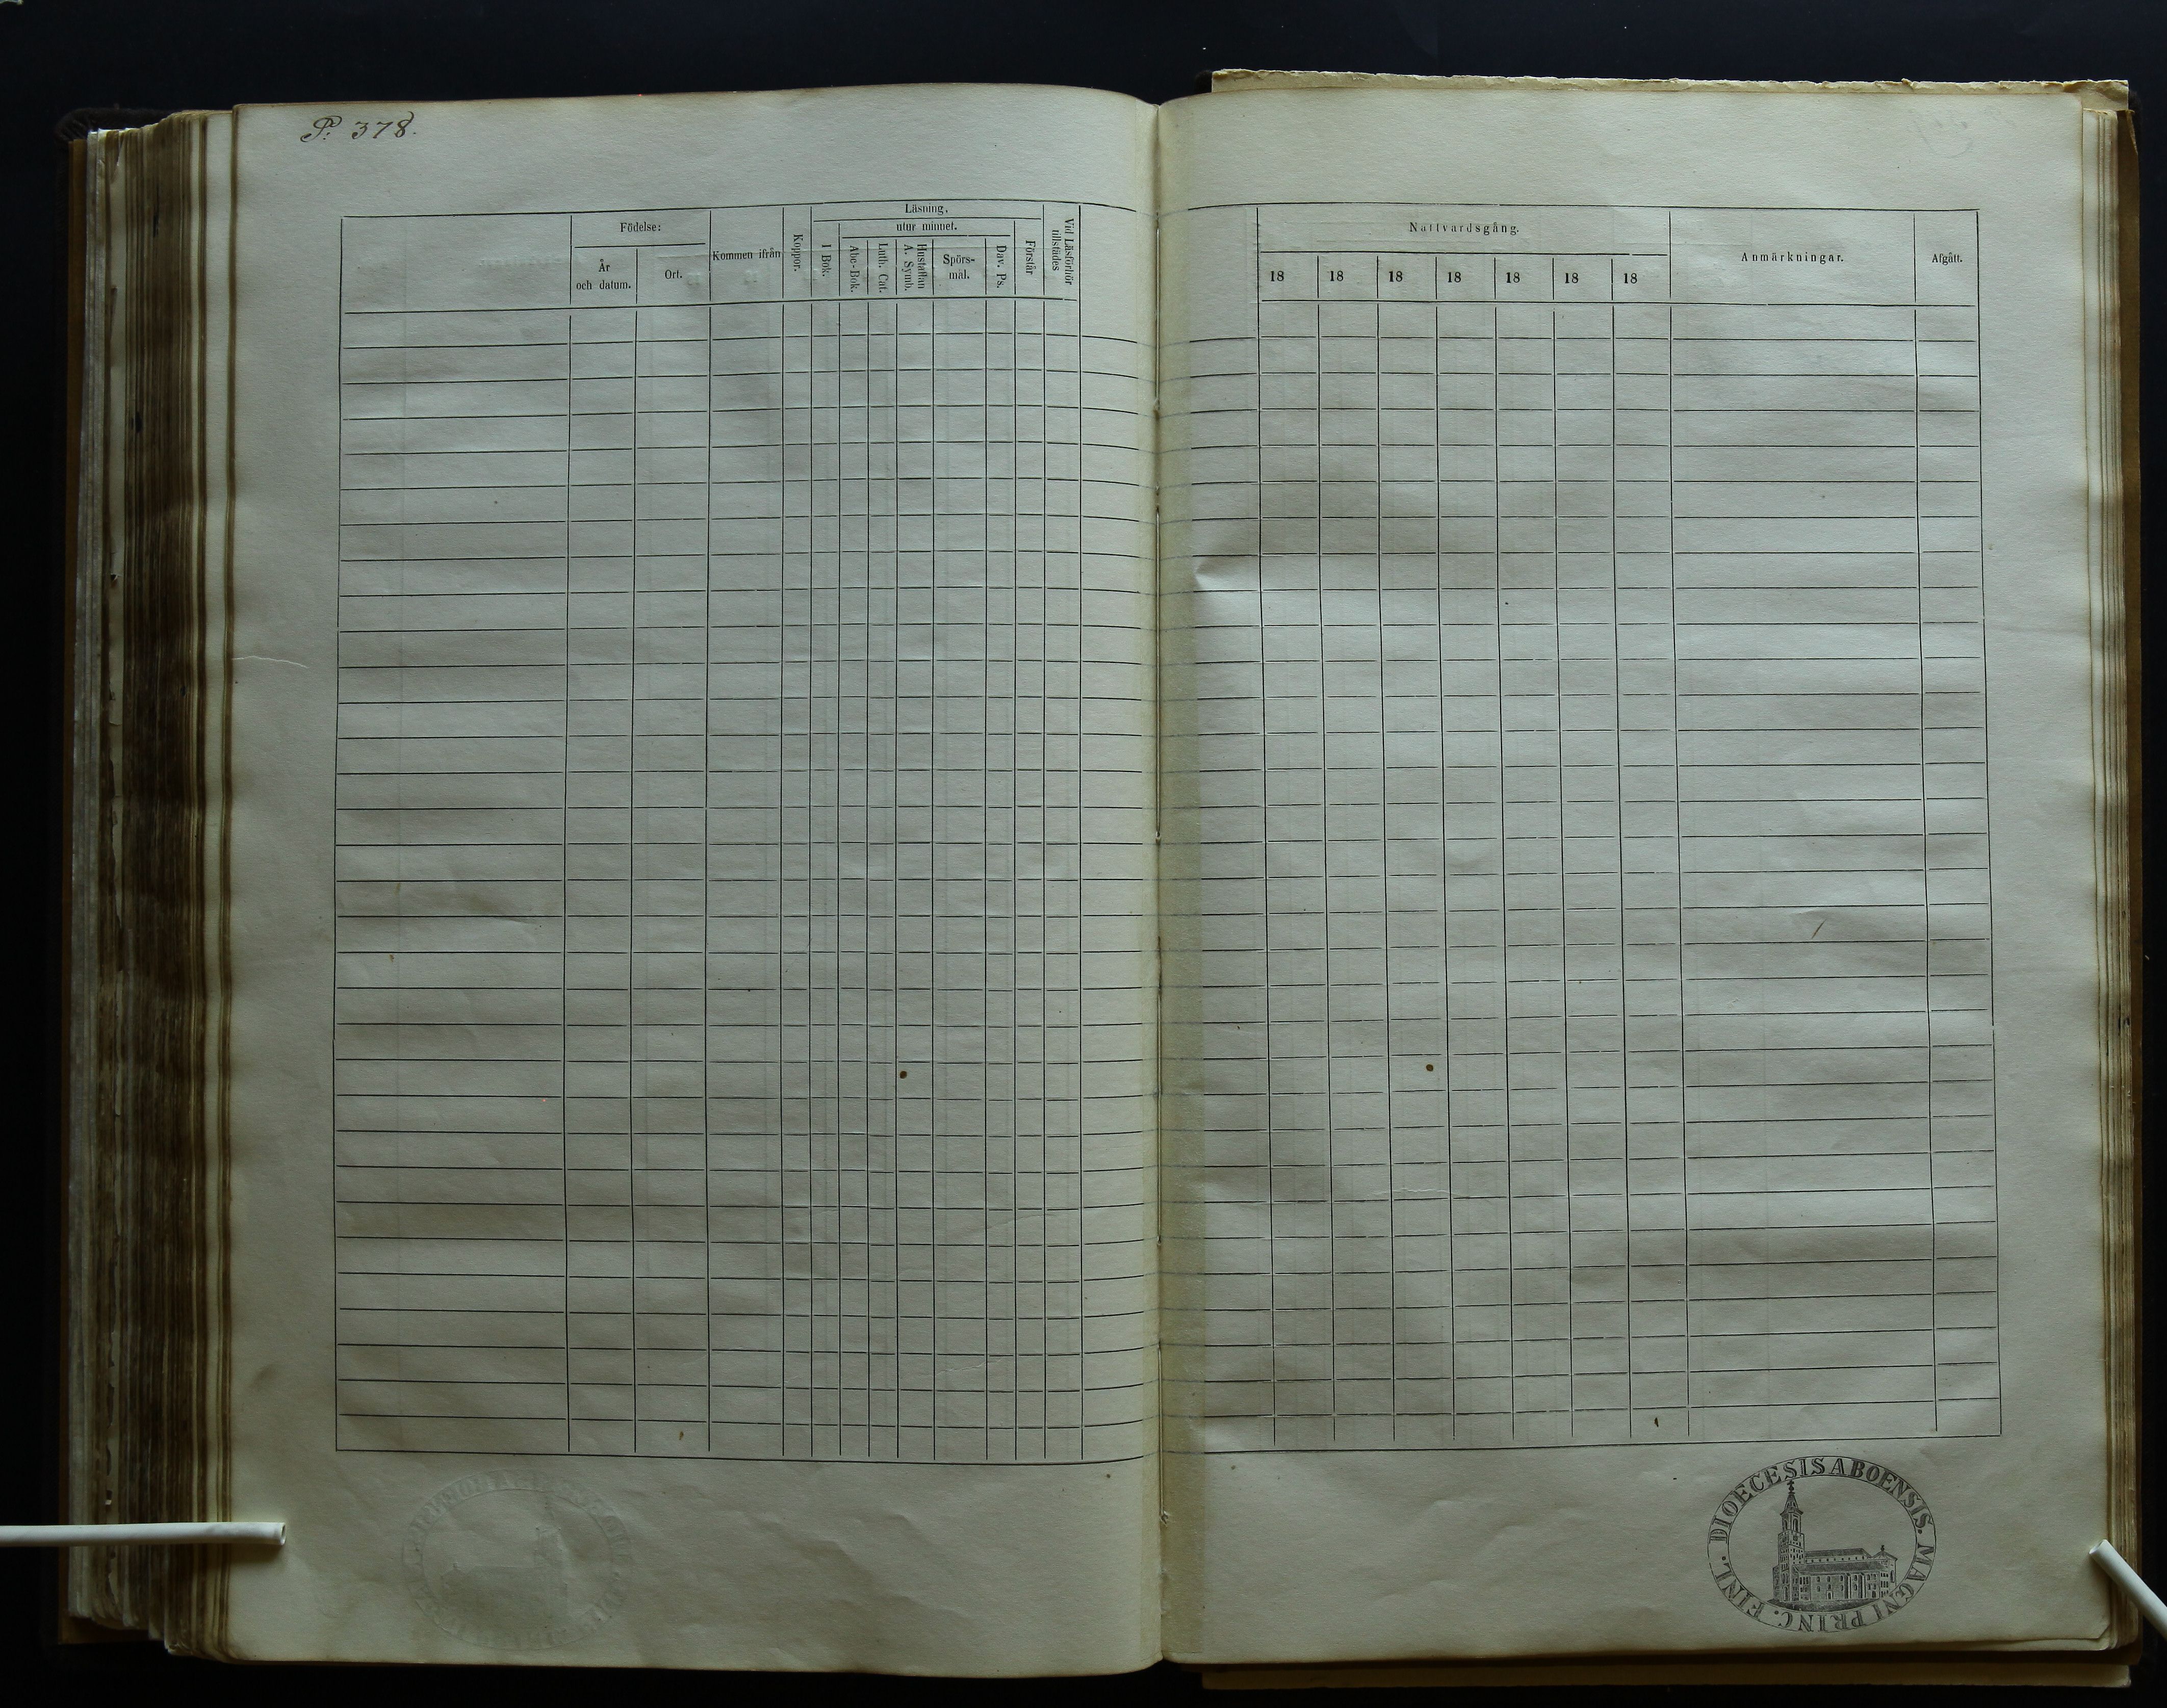 P. 378.
Födelse:
År
och datum.
Ort.
Kommen ifrån
Koppor.
Läsning,
utur minnet.
I Bok.
Abc-Bok.
Luth. Cat.
Hustaflan
A. Symb.
Spörs-
mål.
Dav. Ps.
Förstår
Vid Läsförhör
tillstädes
Nattvardsgång.
18 18 18 18 18 18 18
Anmärkningar.
Afgått.
FINL. DIOECESIS ABOENSIS. MAGNI PRINC.